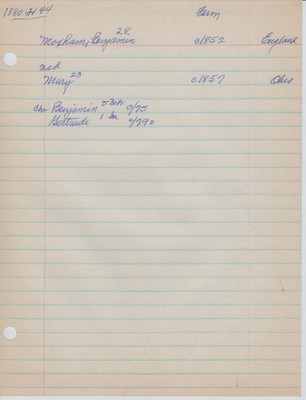 1880 H 44 Farm
28
Moxham, Benjamin c1852 England
md
Mary 23 c1857 Ohio
Ch Benjamin 5 c/75
Gertrude 1